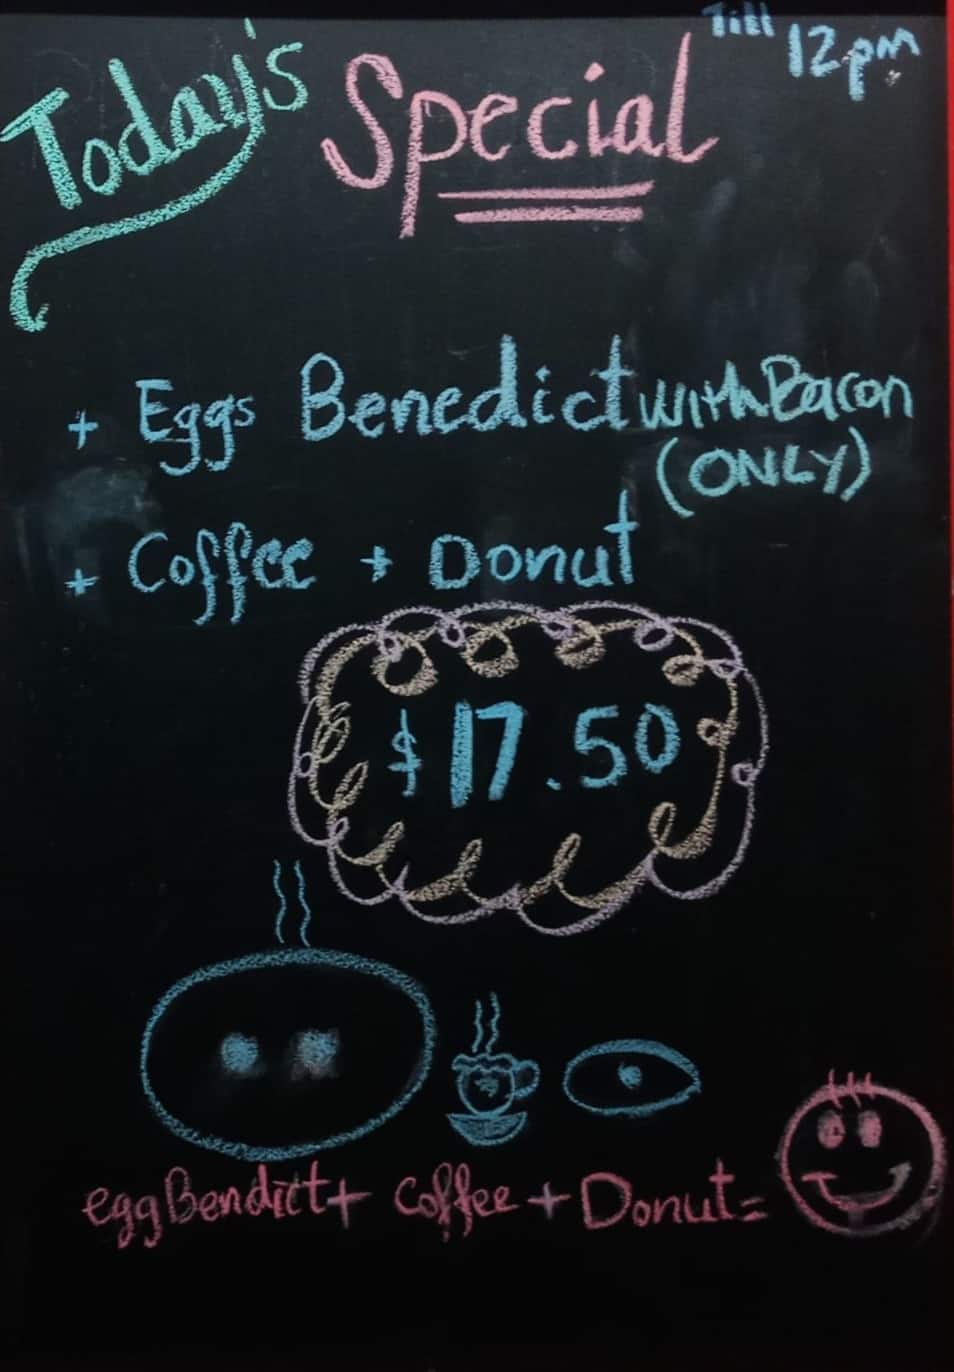 Today's Special Till 12pm
+ Eggs Benedict with Bacon
(ONLY)
+ Coffee + Donut
$17.50
egg Bendict + Coffee + Donut =